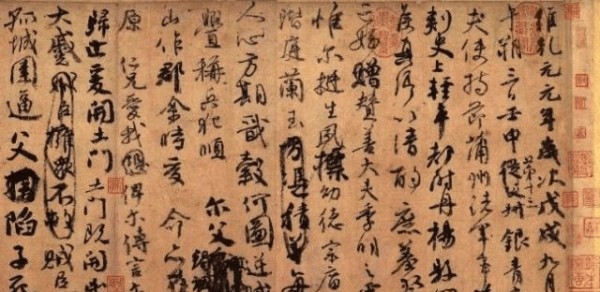 維乾元元年歲次戊戌九月
午朔三日壬申第十三叔銀青
夫使持節蒲州諸軍事
刺史上輕車都尉丹楊縣開
侯真卿以清酌庶羞
亡姪贈贊善大夫季明之
惟爾挺生夙標幼德宗廟
階庭蘭玉方憑積善每
人心方期戩穀何圖逆賊
釁稱兵犯順爾父
山作郡余時受命亦
原仁兄愛我俾爾傳言
歸止爰開土門土門既開
大蹙賊臣擁眾不救
孤城圍逼父陷子死